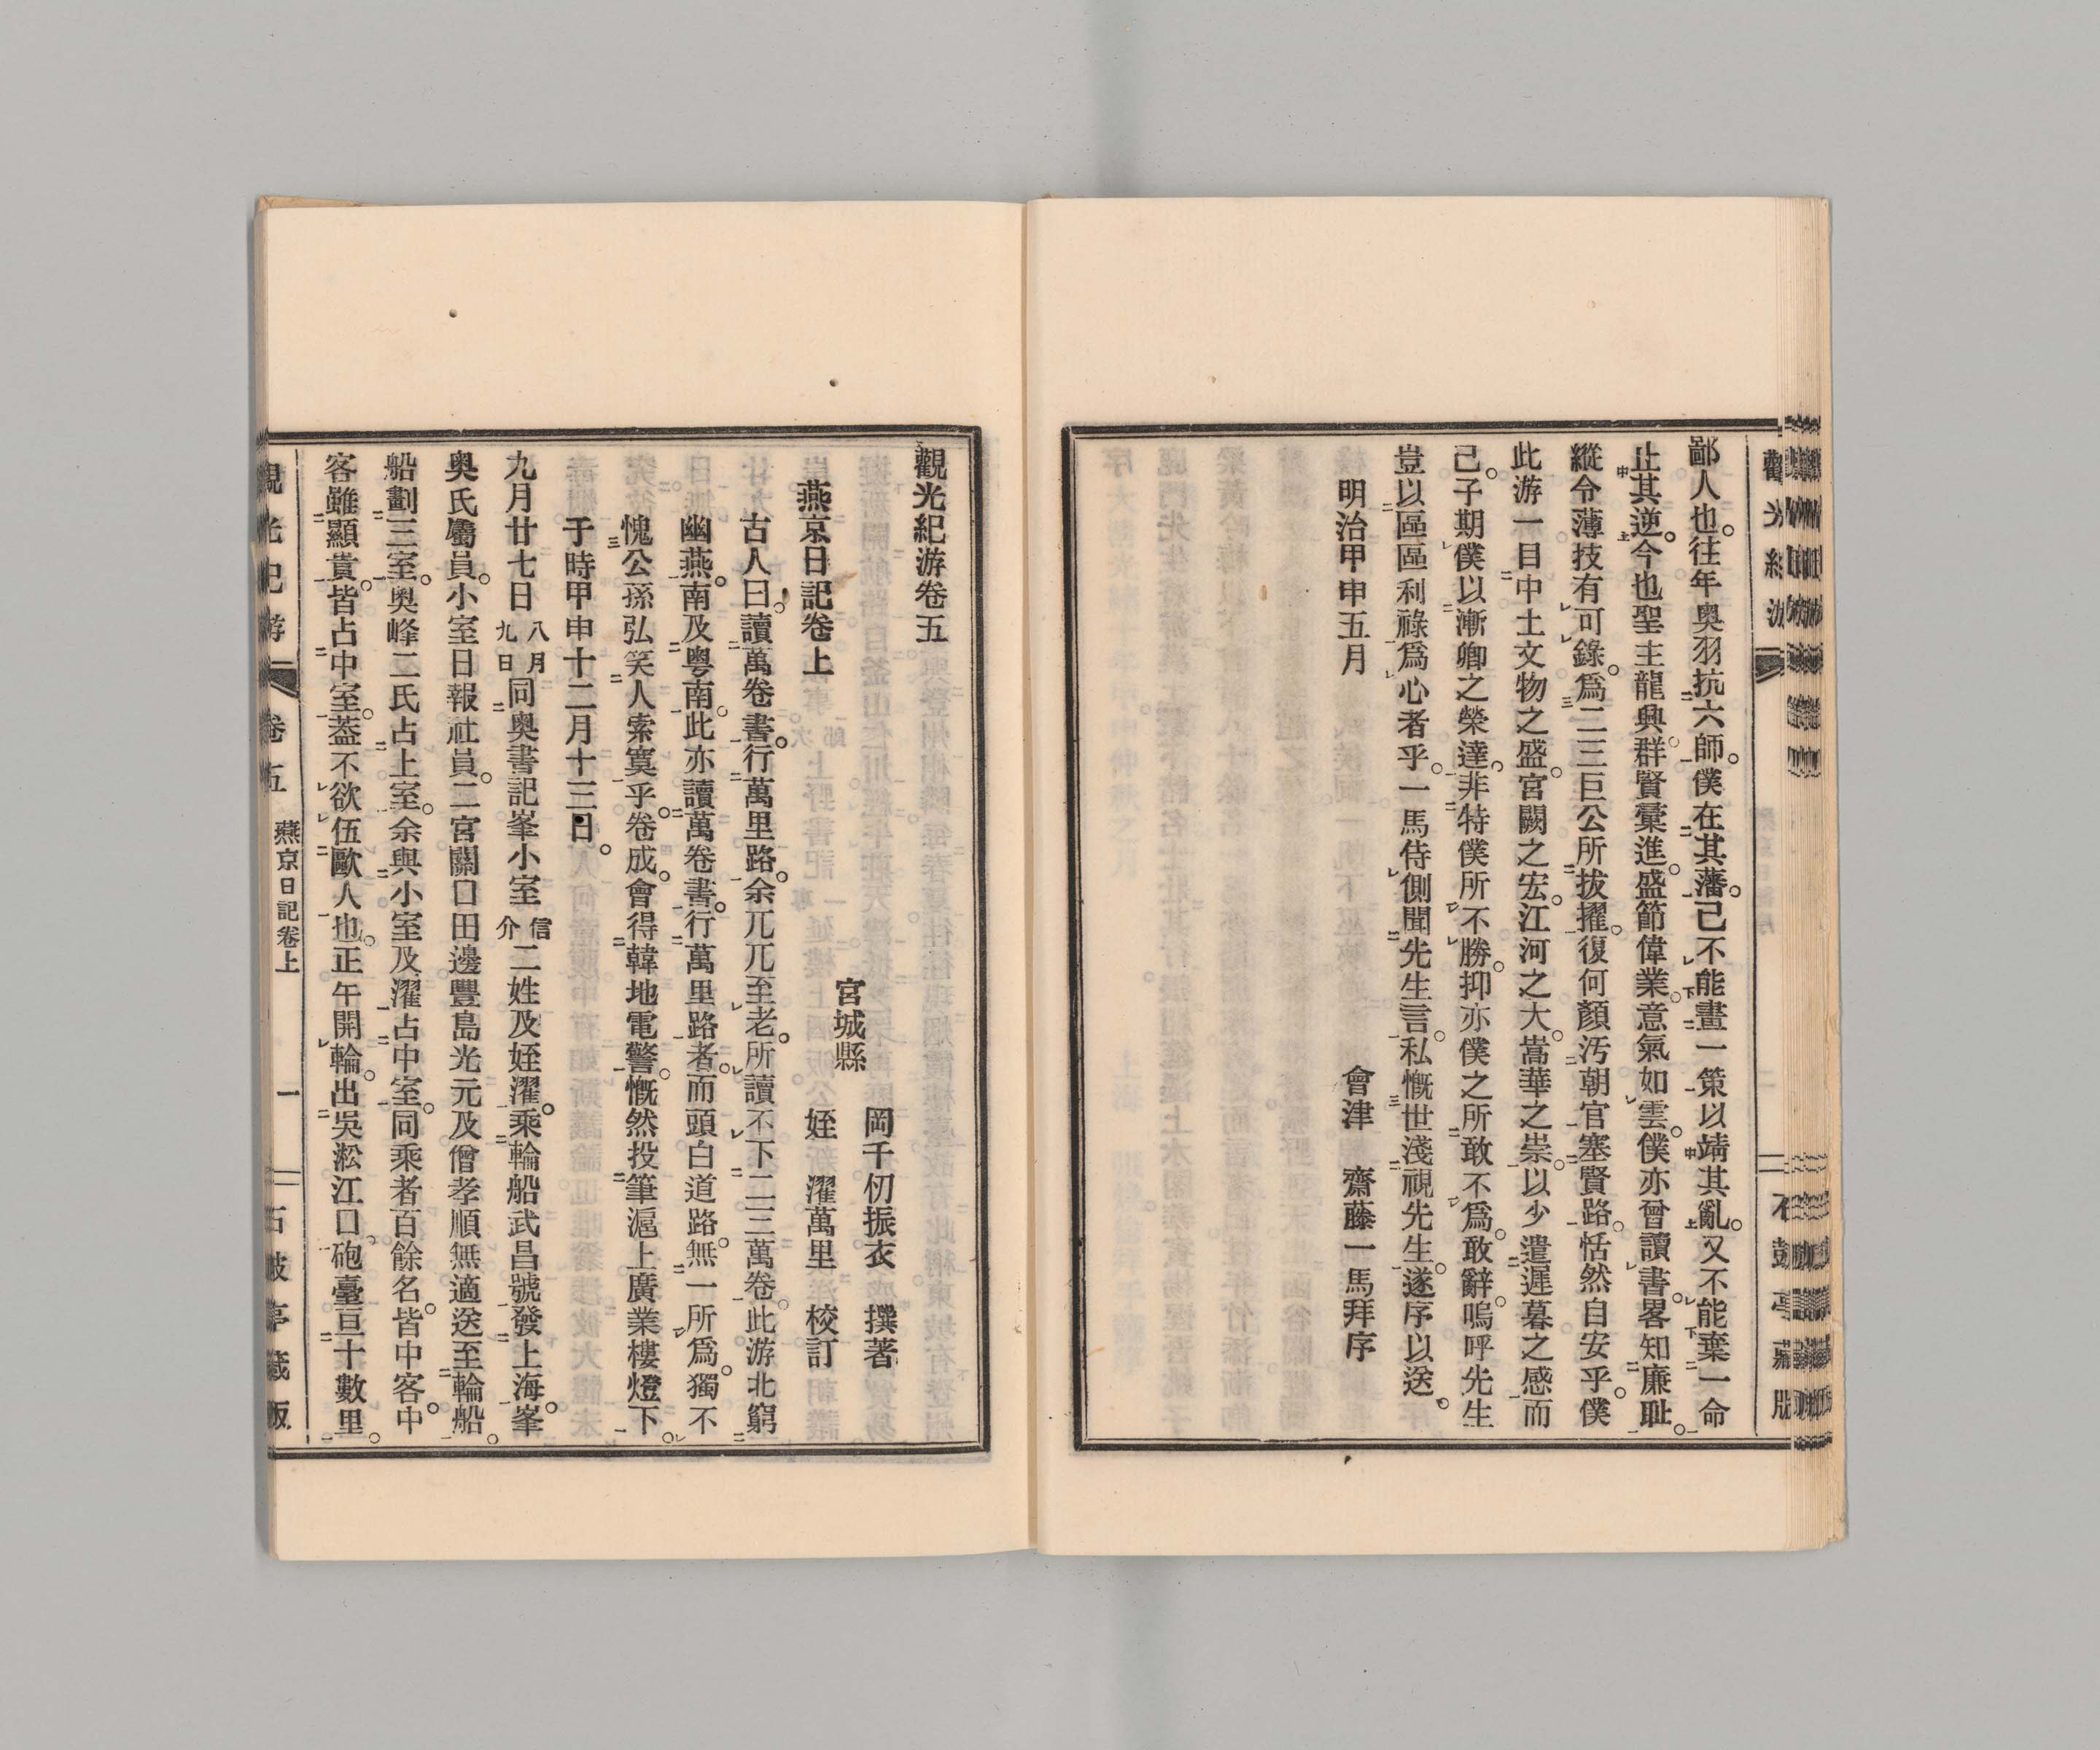 鄙人也。往年奥羽抗六師。僕在其藩。已不能畫一策以靖其亂。又不能棄一命
止其逆。今也聖主龍興。群賢彙進。盛節偉業。意氣如雲。僕亦曾讀書。畧知廉耻。
縱令薄技有可錄。爲二三巨公所拔擢。復何顏汚朝官塞賢路。恬然自安乎。僕
此游一目中土文物之盛。宮闕之宏。江河之大。嵩華之崇。以少遣遲暮之感而
己。子期僕以漸卿之榮達。非特僕所不勝。抑亦僕之所敢不爲。敢辭。嗚呼先生
豈以區區利祿爲心者乎。一馬侍側聞先生言。私慨世淺視先生。遂序以送。
明治甲申五月
會津 齋藤一馬拜序
觀光紀游卷五
宮城縣 岡千仞振衣 撰著
姪 濯萬里 校訂
燕京日記卷上
古人曰。讀萬卷書。行萬里路。余兀兀至老。所讀不下二三萬卷。此游北窮
幽燕。南及粤南。此亦讀萬卷書。行萬里路者。而頭白道路。無一所爲。獨不
愧公孫弘笑人索寞乎。卷成。會得韓地電警。慨然投筆滬上廣業樓燈下。
于時甲申十二月十三日。
九月廿七日 八月九日 同奥書記峯小室 信介 二姓及姪濯。乘輪船武昌號發上海。峯
奥氏屬員。小室日報社員。二宮關口田邊豐島光元及僧孝順無適送至輪船。
船劃三室。奥峰二氏占上室。余與小室及濯占中室。同乘者百餘名。皆中客。中
客雖顯貴。皆占中室。葢不欲伍歐人也。正午開輪。出吳淞江口。砲臺亘十數里。
觀光紀游 卷五 燕京日記卷上 一 石鼓亭藏版